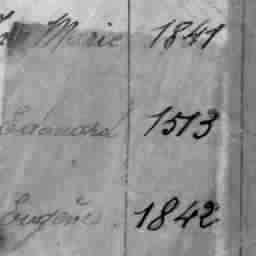 Marie 1841
Edouard 1513
Eugène 1842